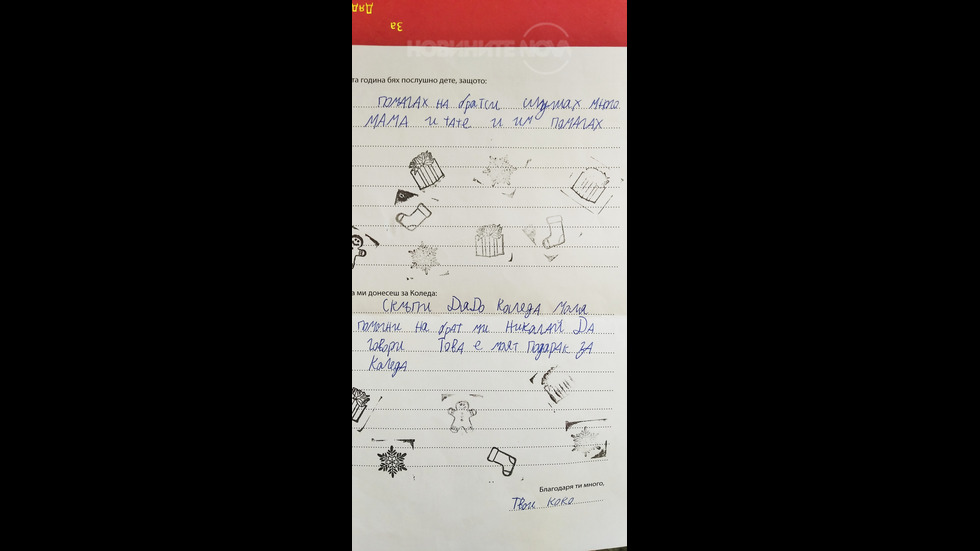 Дяд
За
НОВИНИТЕ NOVA
та година бях послушно дете, защото:
ПОМАГАХ НА братси слушах много
МАМА и тате и им ПОМАГАХ
а ми донесеш за Коледа:
Скъпи ДяДо Коледа моля
помогни на брат ми Николай ДА
говори Това е моят Подарак ЗА
Коледа
Благодаря ти много,
Твои коко